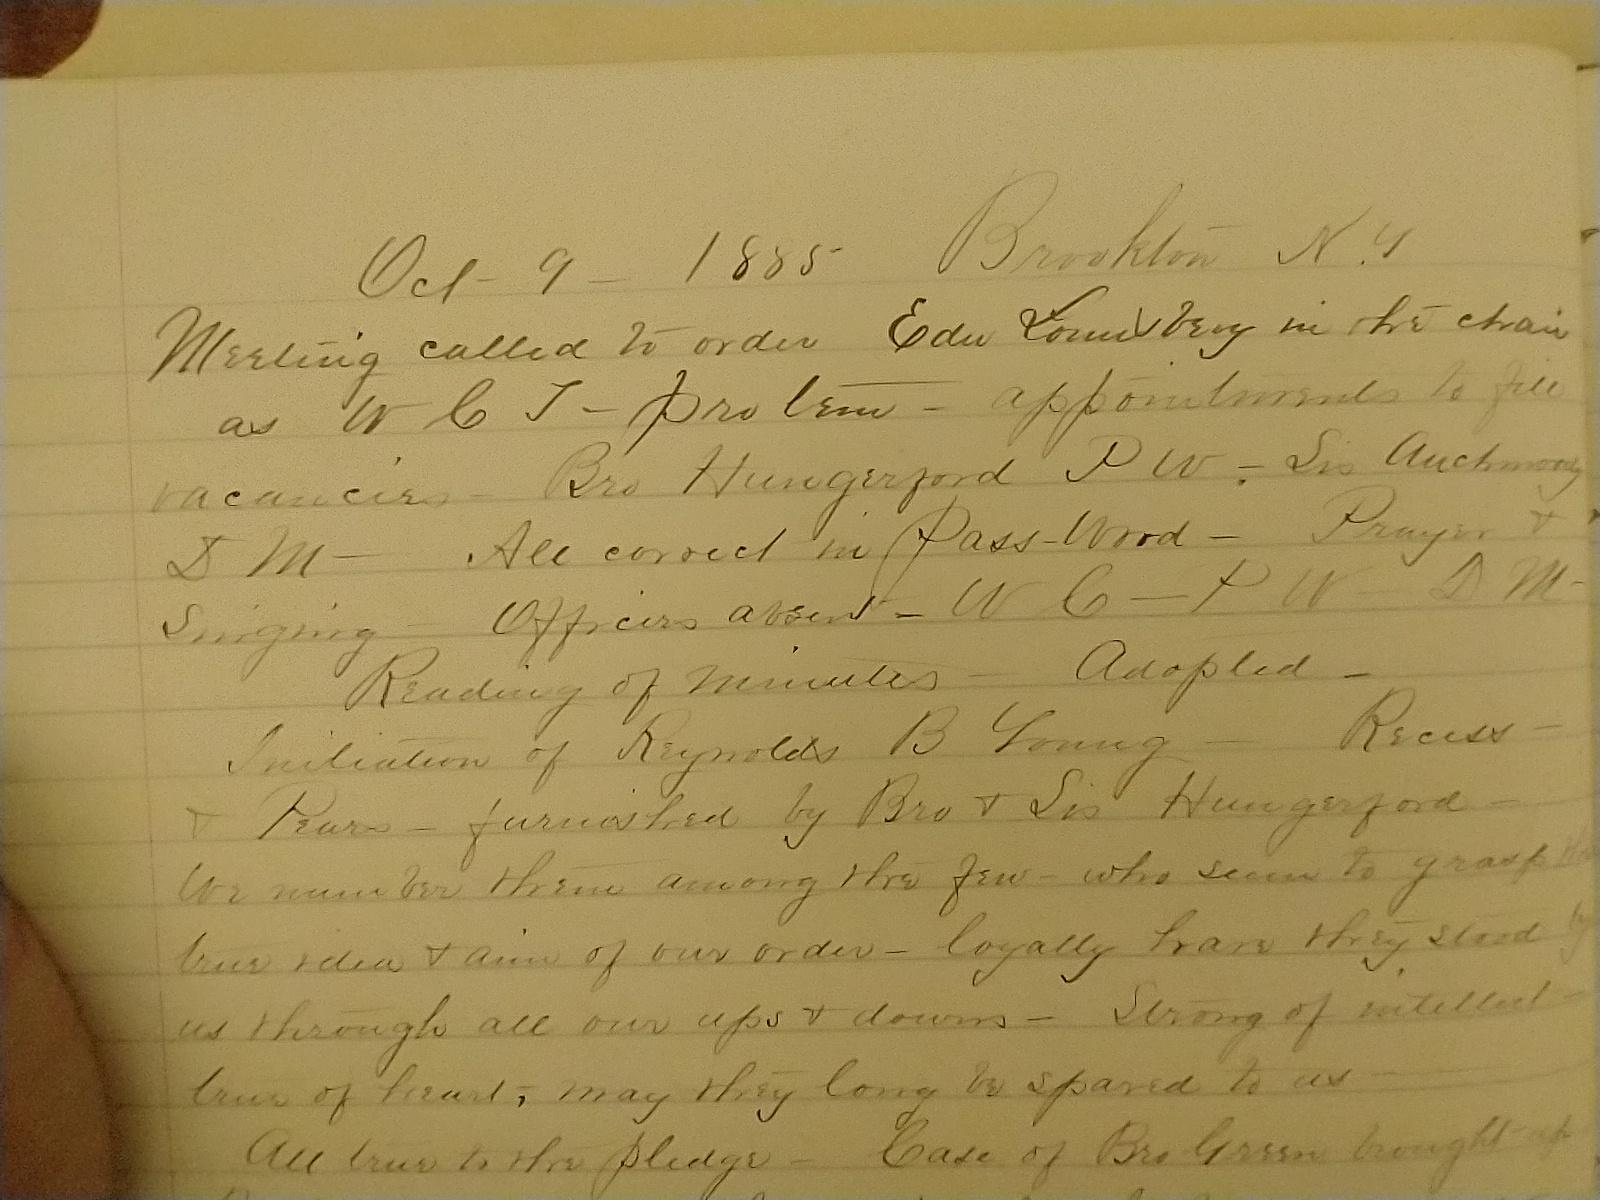 Oct - 9 - 1885 Brookton N.Y
Meeting called to order Edw Lounsbery in the chair
as W C T - pro tem - appointments to fill
vacancies - Bro Hungerford P W - Sis Auchmoody
D M - All correct in Pass-Word - Prayer &
Singing - Officers absent - W C - P W - D M -
Reading of minutes - Adopted -
Initiation of Reynolds B Young - Recess -
& Pears - furnished by Bro & Sis Hungerford -
We number them among the few - who seem to grasp the
true idea & aim of our order - loyally have they stood by
us through all our ups & downs - Strong of intellect -
true of heart, may they long be spared to us -
All true to the pledge - Case of Bro Green brought up